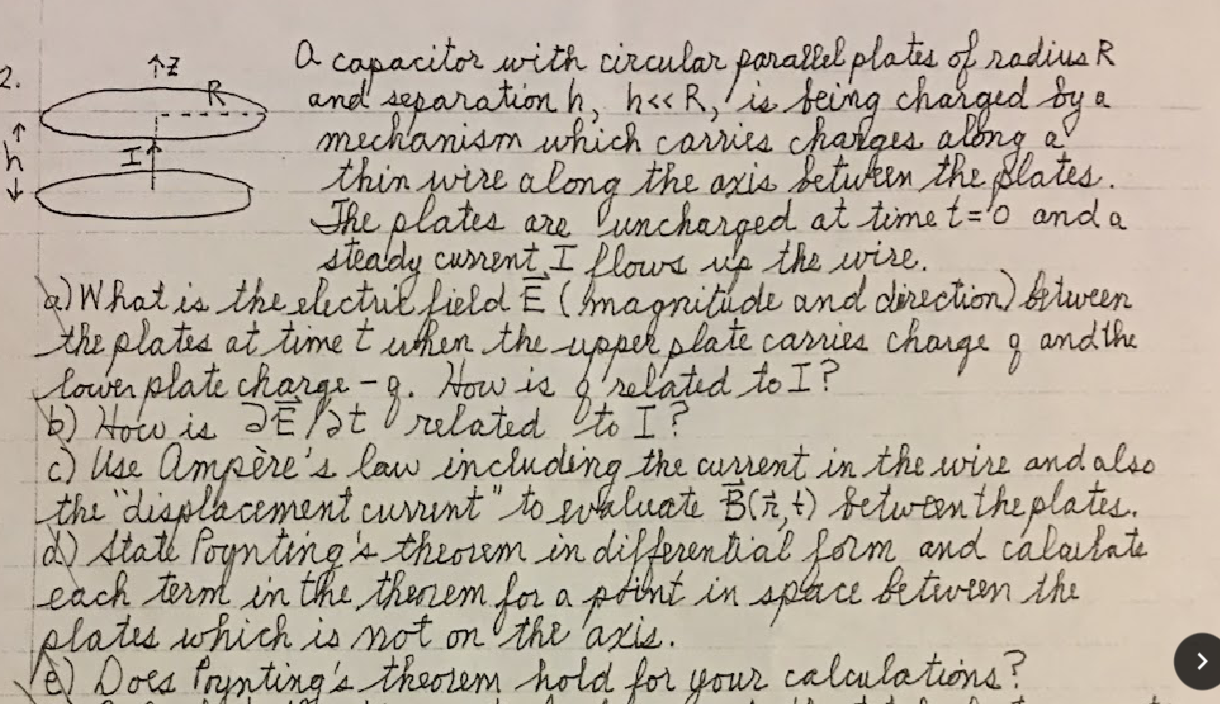 2.
↑z
R
↑
h
↓
I
A capacitor with circular parallel plates of radius R
and separation h, h<<R, is being charged by a
mechanism which carries charges along a
thin wire along the axis between the plates.
The plates are uncharged at time t=0 and a
steady current I flows up the wire.
a) What is the electric field E⃗ (magnitude and direction) between
the plates at time t when the upper plate carries charge q and the
lower plate charge -q. How is q related to I?
b) How is ∂E⃗/∂t related to I?
c) Use Ampère's law including the current in the wire and also
the "displacement current" to evaluate B⃗(r⃗,t) between the plates.
d) State Poynting's theorem in differential form and calculate
each term in the theorem for a point in space between the
plates which is not on the axis.
e) Does Poynting's theorem hold for your calculations?